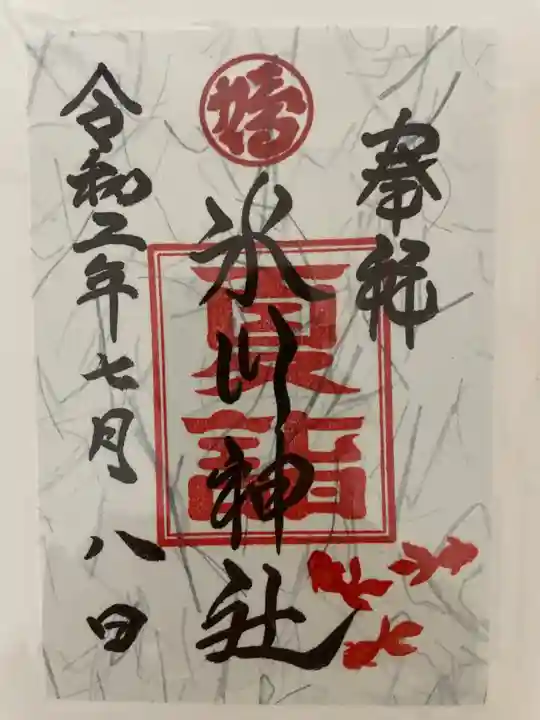 奉拝
氷川神社
夏詣
令和二年七月八日